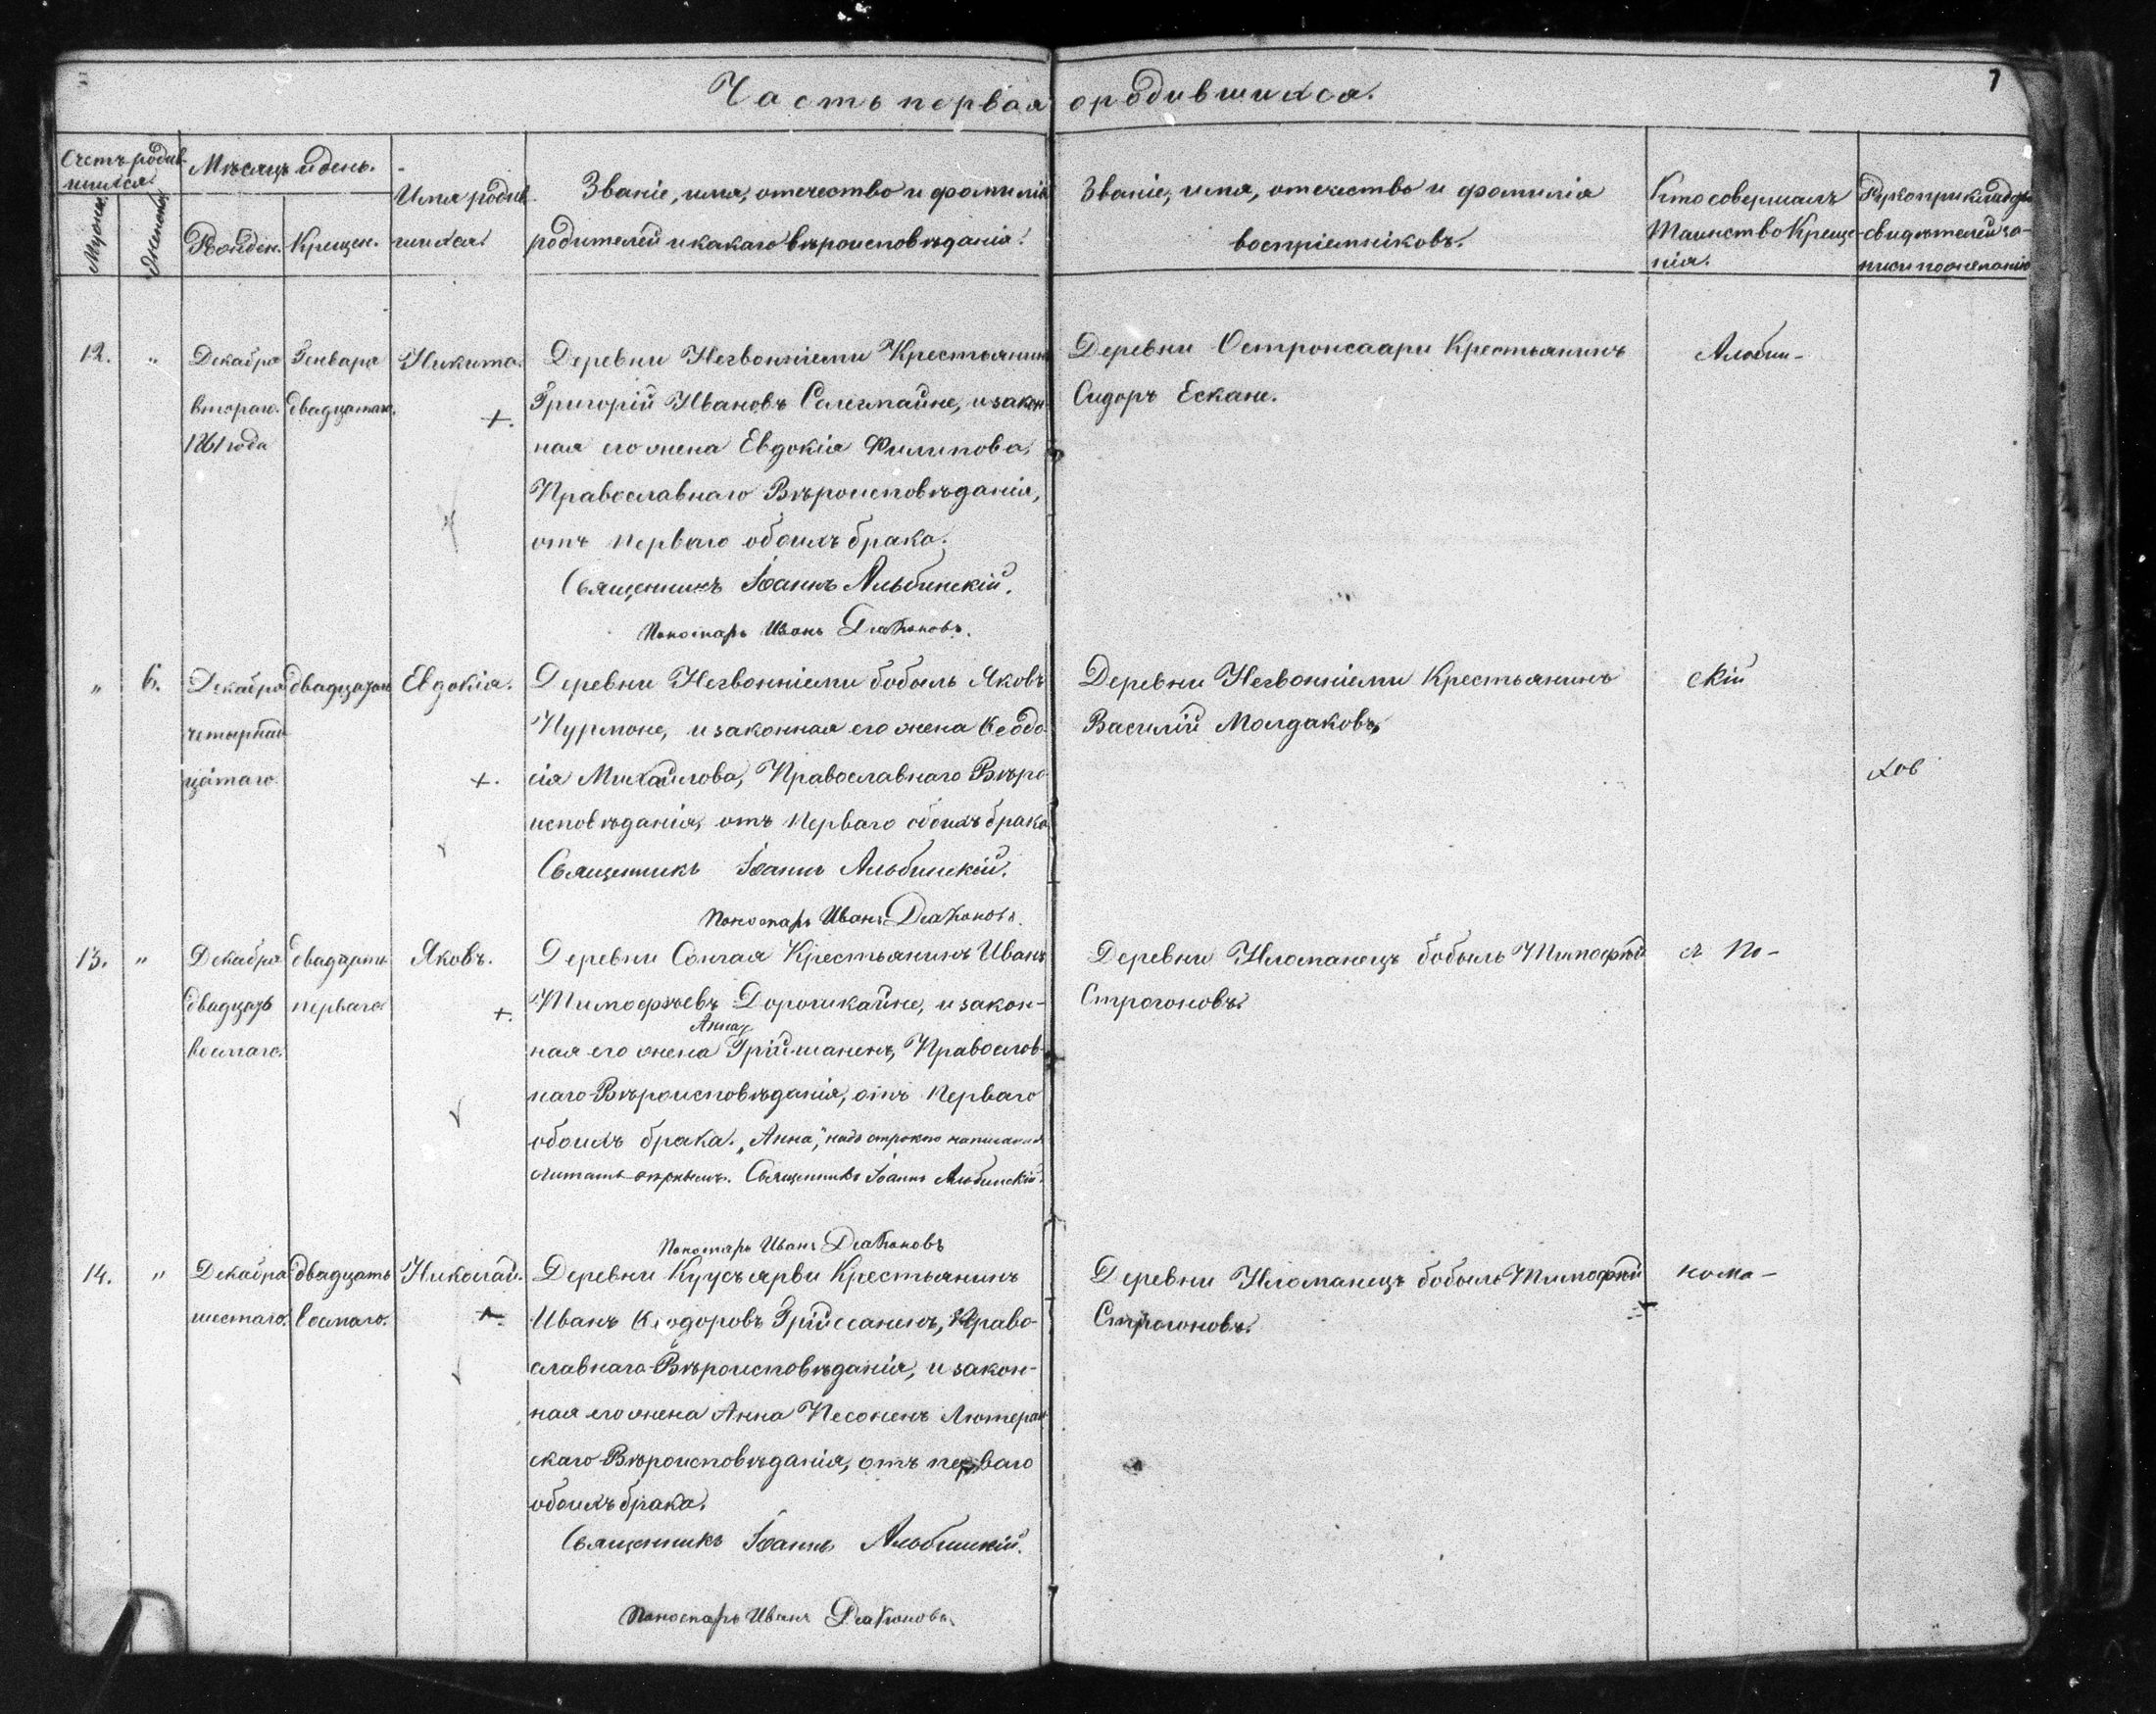 Часть первая о родившихся.
7
Счетъ родив-
шихся.
Мужеска.
Женска.
Мѣсяцъ и день.
Рожден.
Крещен.
Имя родив-
шихся.
Званіе, имя, отечество и фамилія
родителей и какаго вѣроисповѣданія.
Званіе, имя, отечество и фамилія
воспріемниковъ.
Кто совершалъ
Таинство Креще-
нія.
Рукоприкладство
свидѣтелей за-
писи по желанію
12.
"
Декабря
втораго.
1861 года
Генваря
двадцатаго.
Никита.
Деревни Крестьянинъ
Григорій Ивановъ и закон-
ная его жена Евдокія Филипова,
Православнаго Вѣроисповѣданія,
отъ перваго обоихъ брака.
Священникъ Іоаннъ Альбинскій.
Пономарь Иванъ Дьяконовъ.
Деревни Остронсаари Крестьянинъ
Сидоръ Ескане.
Альбин-
"
6.
Декабря
четырнад
цатаго.
двадцатаго
Евдокія.
Деревни бобыль Яковъ
Нурмоне, и законная его жена Ѳеодо
сія Михайлова, Православнаго Вѣро
исповѣданія, отъ перваго обоихъ брака
Священникъ Іоаннъ Альбинскій.
Пономарь Иванъ Дьяконовъ.
Деревни Крестьянинъ
Василій Молдаковъ.
скій
хов
13.
"
Декабря
двадцать
восмаго.
двадцать
перваго.
Яковъ.
Деревни Крестьянинъ Иванъ
Тимофѣевъ и закон-
Анна
ная его жена Православ-
наго Вѣроисповѣданія, отъ перваго
обоихъ брака. „Анна," надъ строкою написанное
читать вѣрнымъ. Священникъ Іоаннъ Альбинскій.
Пономарь Иванъ Дьяконовъ
Деревни Иломанецъ бобыль Тимофѣй
Строгоновъ.
съ по-
14.
"
Декабря
шестаго.
двадцать
восмаго.
Николай.
Деревни Куусъярви Крестьянинъ
Иванъ Ѳеодоровъ Право-
славнаго Вѣроисповѣданія, и закон-
ная его жена Анна Песоненъ Лютеран
скаго Вѣроисповѣданія, отъ перваго
обоихъ брака.
Священникъ Іоаннъ Альбинскій.
Пономарь Иванъ Дьяконовъ.
Деревни Иломанецъ бобыль Тимофѣй
Строгоновъ.
нома-